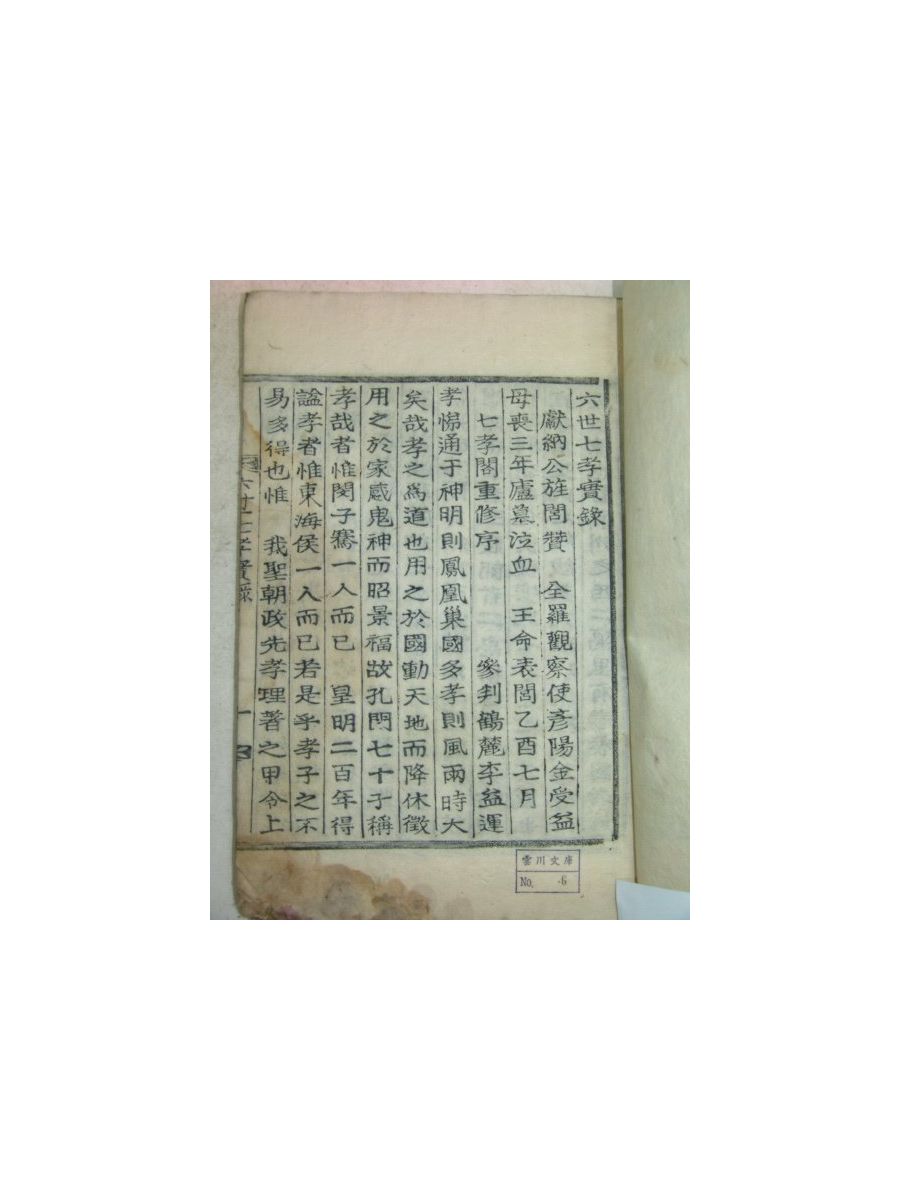 六世七孝實錄
獻納公旌閭贊 全羅觀察使彦陽金受益
母喪三年廬墓泣血 王命表閭乙酉七月
七孝閣重修序 參判鶴麓李益運
孝悌通于神明則鳳凰巢國多孝則風雨時大
矣哉孝之爲道也用之於國動天地而降休徵
用之於家感鬼神而昭景福故孔門七十子稱
孝哉者惟閔子騫一人而已 皇明二百年得
謚孝者惟東海侯一人而已若是乎孝子之不
易多得也惟 我聖朝政先孝理著之甲令上
六世七孝實錄
一
雲川文庫
No. 6